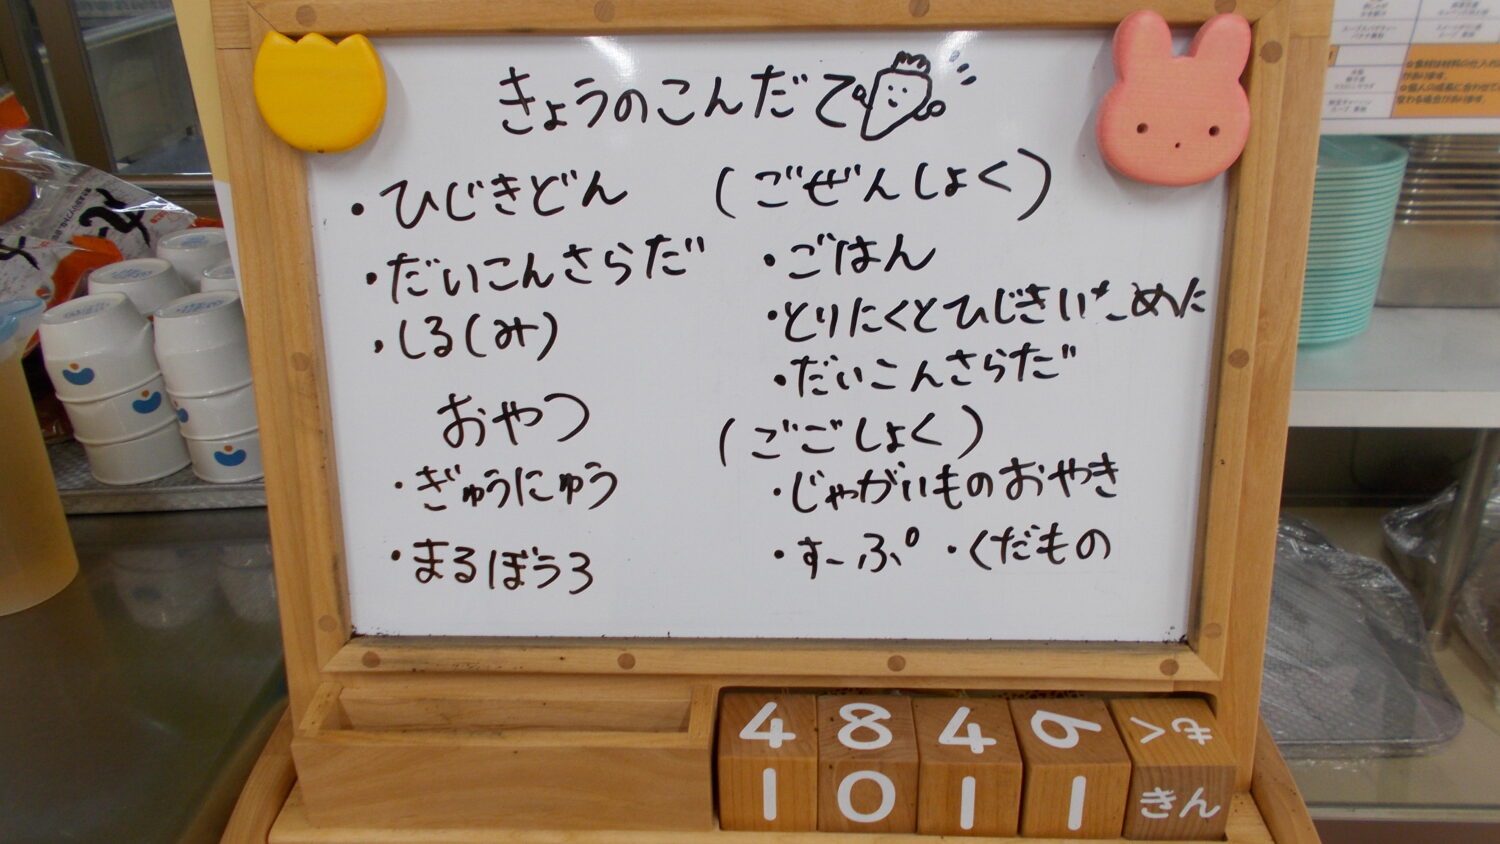 きょうのこんだて
・ひじきどん
・だいこんさらだ
・しる(みそ)
おやつ
・ぎゅうにゅう
・まるぼうろ
(ごぜんしょく)
・ごはん
・とりにくとひじきいために
・だいこんさらだ
(ごごしょく)
・じゃがいものおやき
・すーぷ ・くだもの
4 8 4 6 もく
1 0 1 1 きん